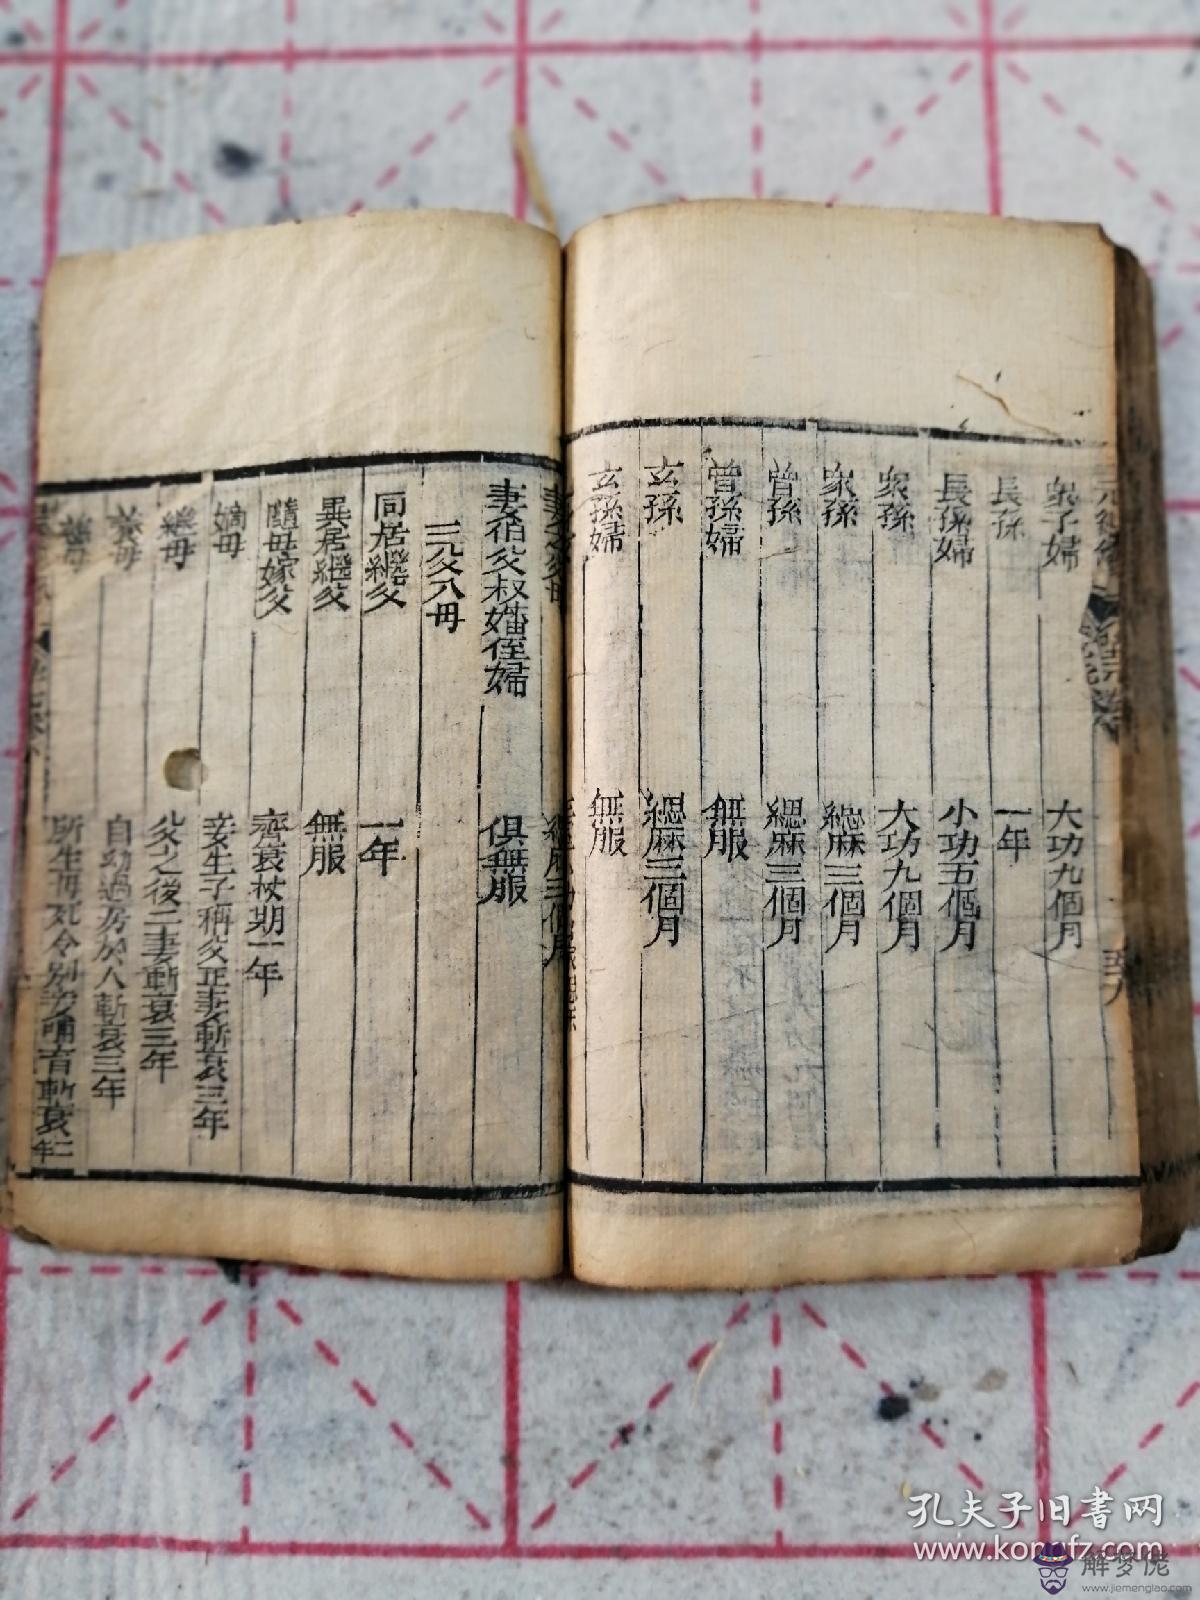 眾子婦 大功九個月
長孫 一年
長孫婦 小功五個月
眾孫 大功九個月
眾孫 緦麻三個月
曾孫 緦麻三個月
曾孫婦 無服
玄孫 緦麻三個月
玄孫婦 無服
妻之父母 緦麻三個月
妻伯父叔嬸侄婦 俱無服
三父八母
同居繼父 一年
異居繼父 無服
隨母嫁父 齊衰杖期一年
嫡母 妾生子稱父正妻斬衰三年
繼母 父之後二妻斬衰三年
養母 自幼過房於人斬衰三年
慈母 所生母死令別妾哺育斬衰三年
孔夫子旧书网
www.kongfz.com
解梦佬
www.jiemenglao.com